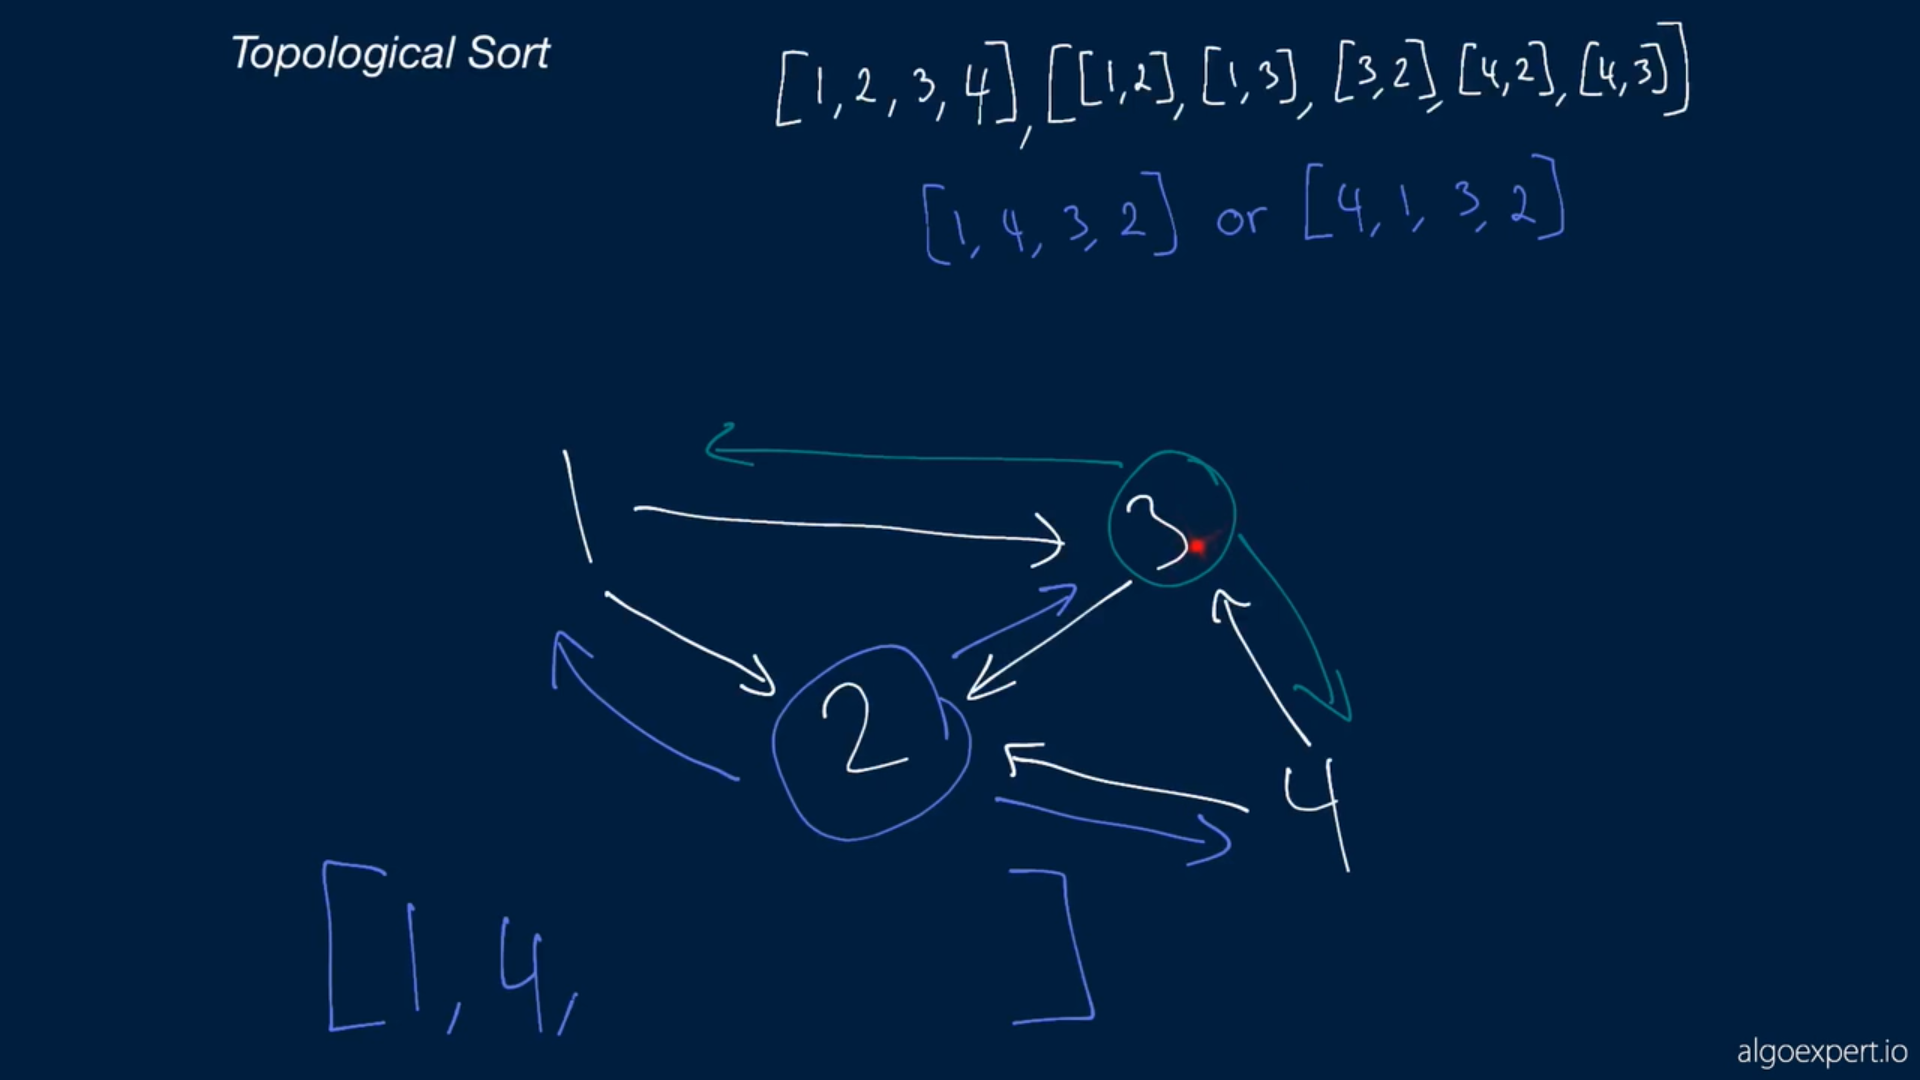 Topological Sort
[1, 2, 3, 4], [[1,2], [1,3], [3,2], [4,2], [4,3]]
[1, 4, 3, 2] or [4, 1, 3, 2]
1
3
2
4
[1, 4, ]
algoexpert.io